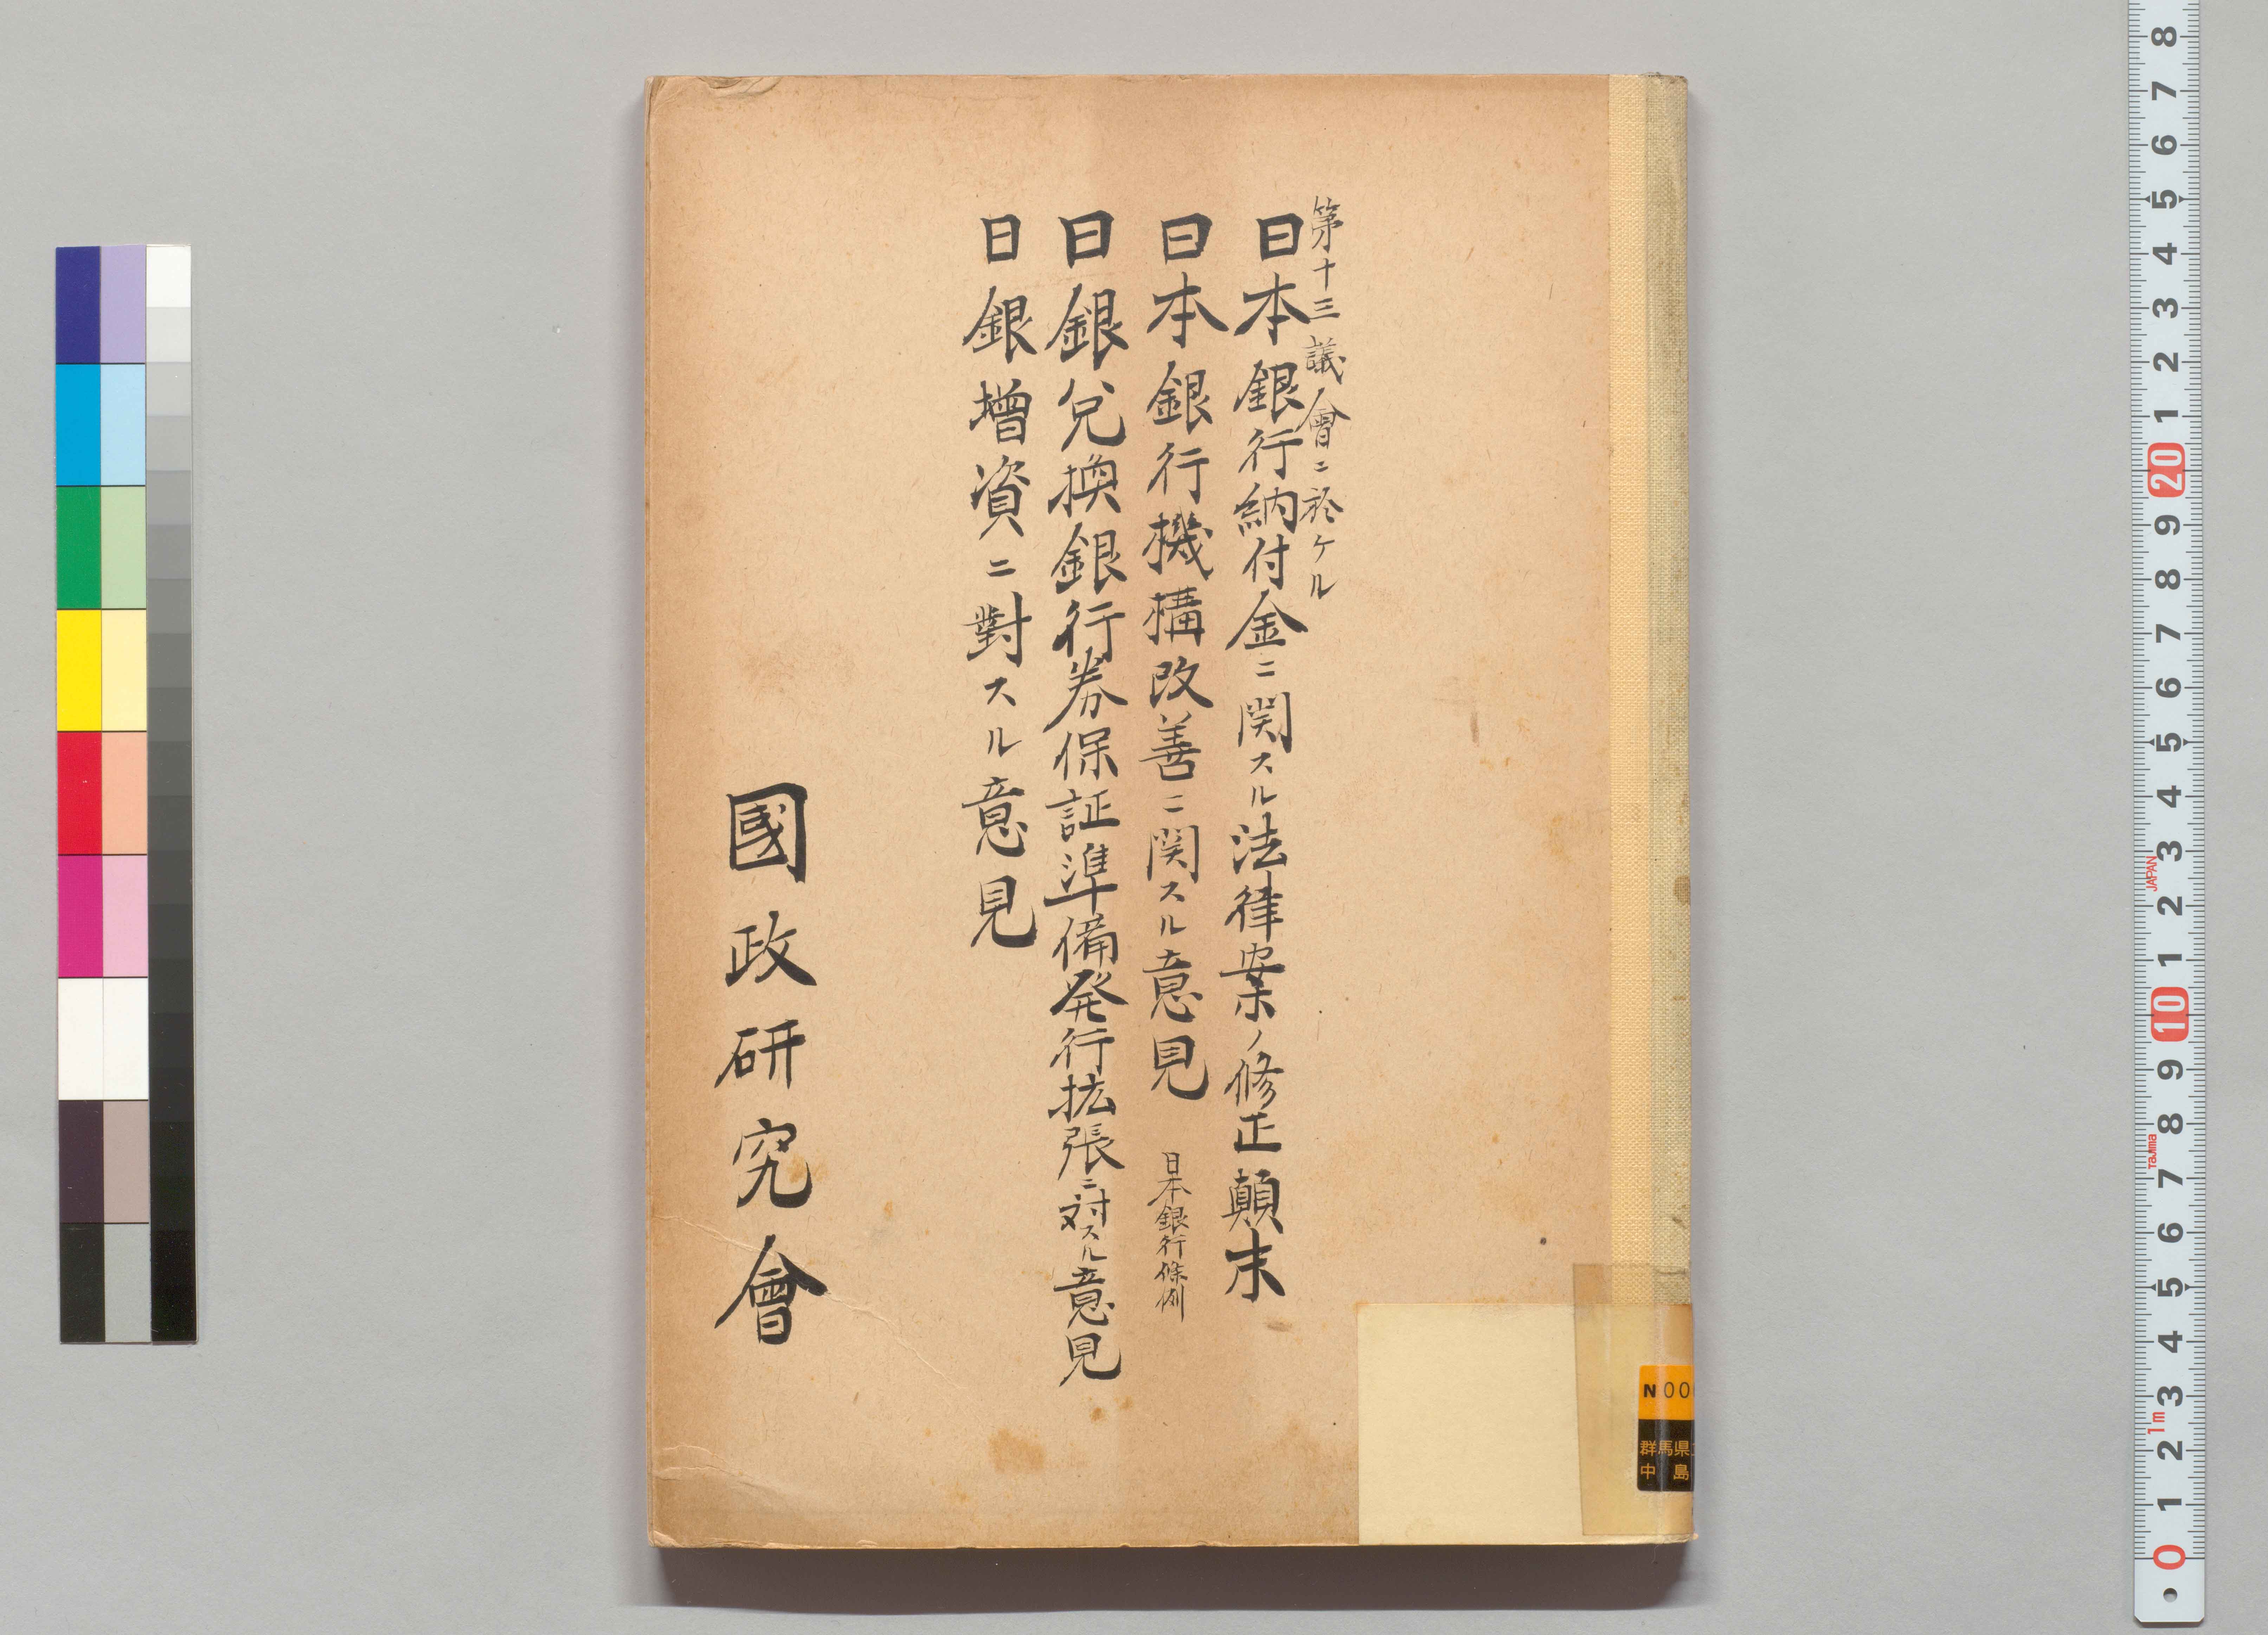 第十三議會ニ於ケル
日本銀行納付金ニ関スル法律案ノ修正顛末
日本銀行機構改善ニ関スル意見 日本銀行條例
日銀兌換銀行券保証準備発行拡張ニ対スル意見
日銀増資ニ對スル意見
國政研究會
N00
群馬県
中 島
8
7
6
5
4
3
2
1
20
9
8
7
6
5
4
3
JAPAN
2
1
10
9
8
Tajima
7
6
5
4
3
1m
2
1
0